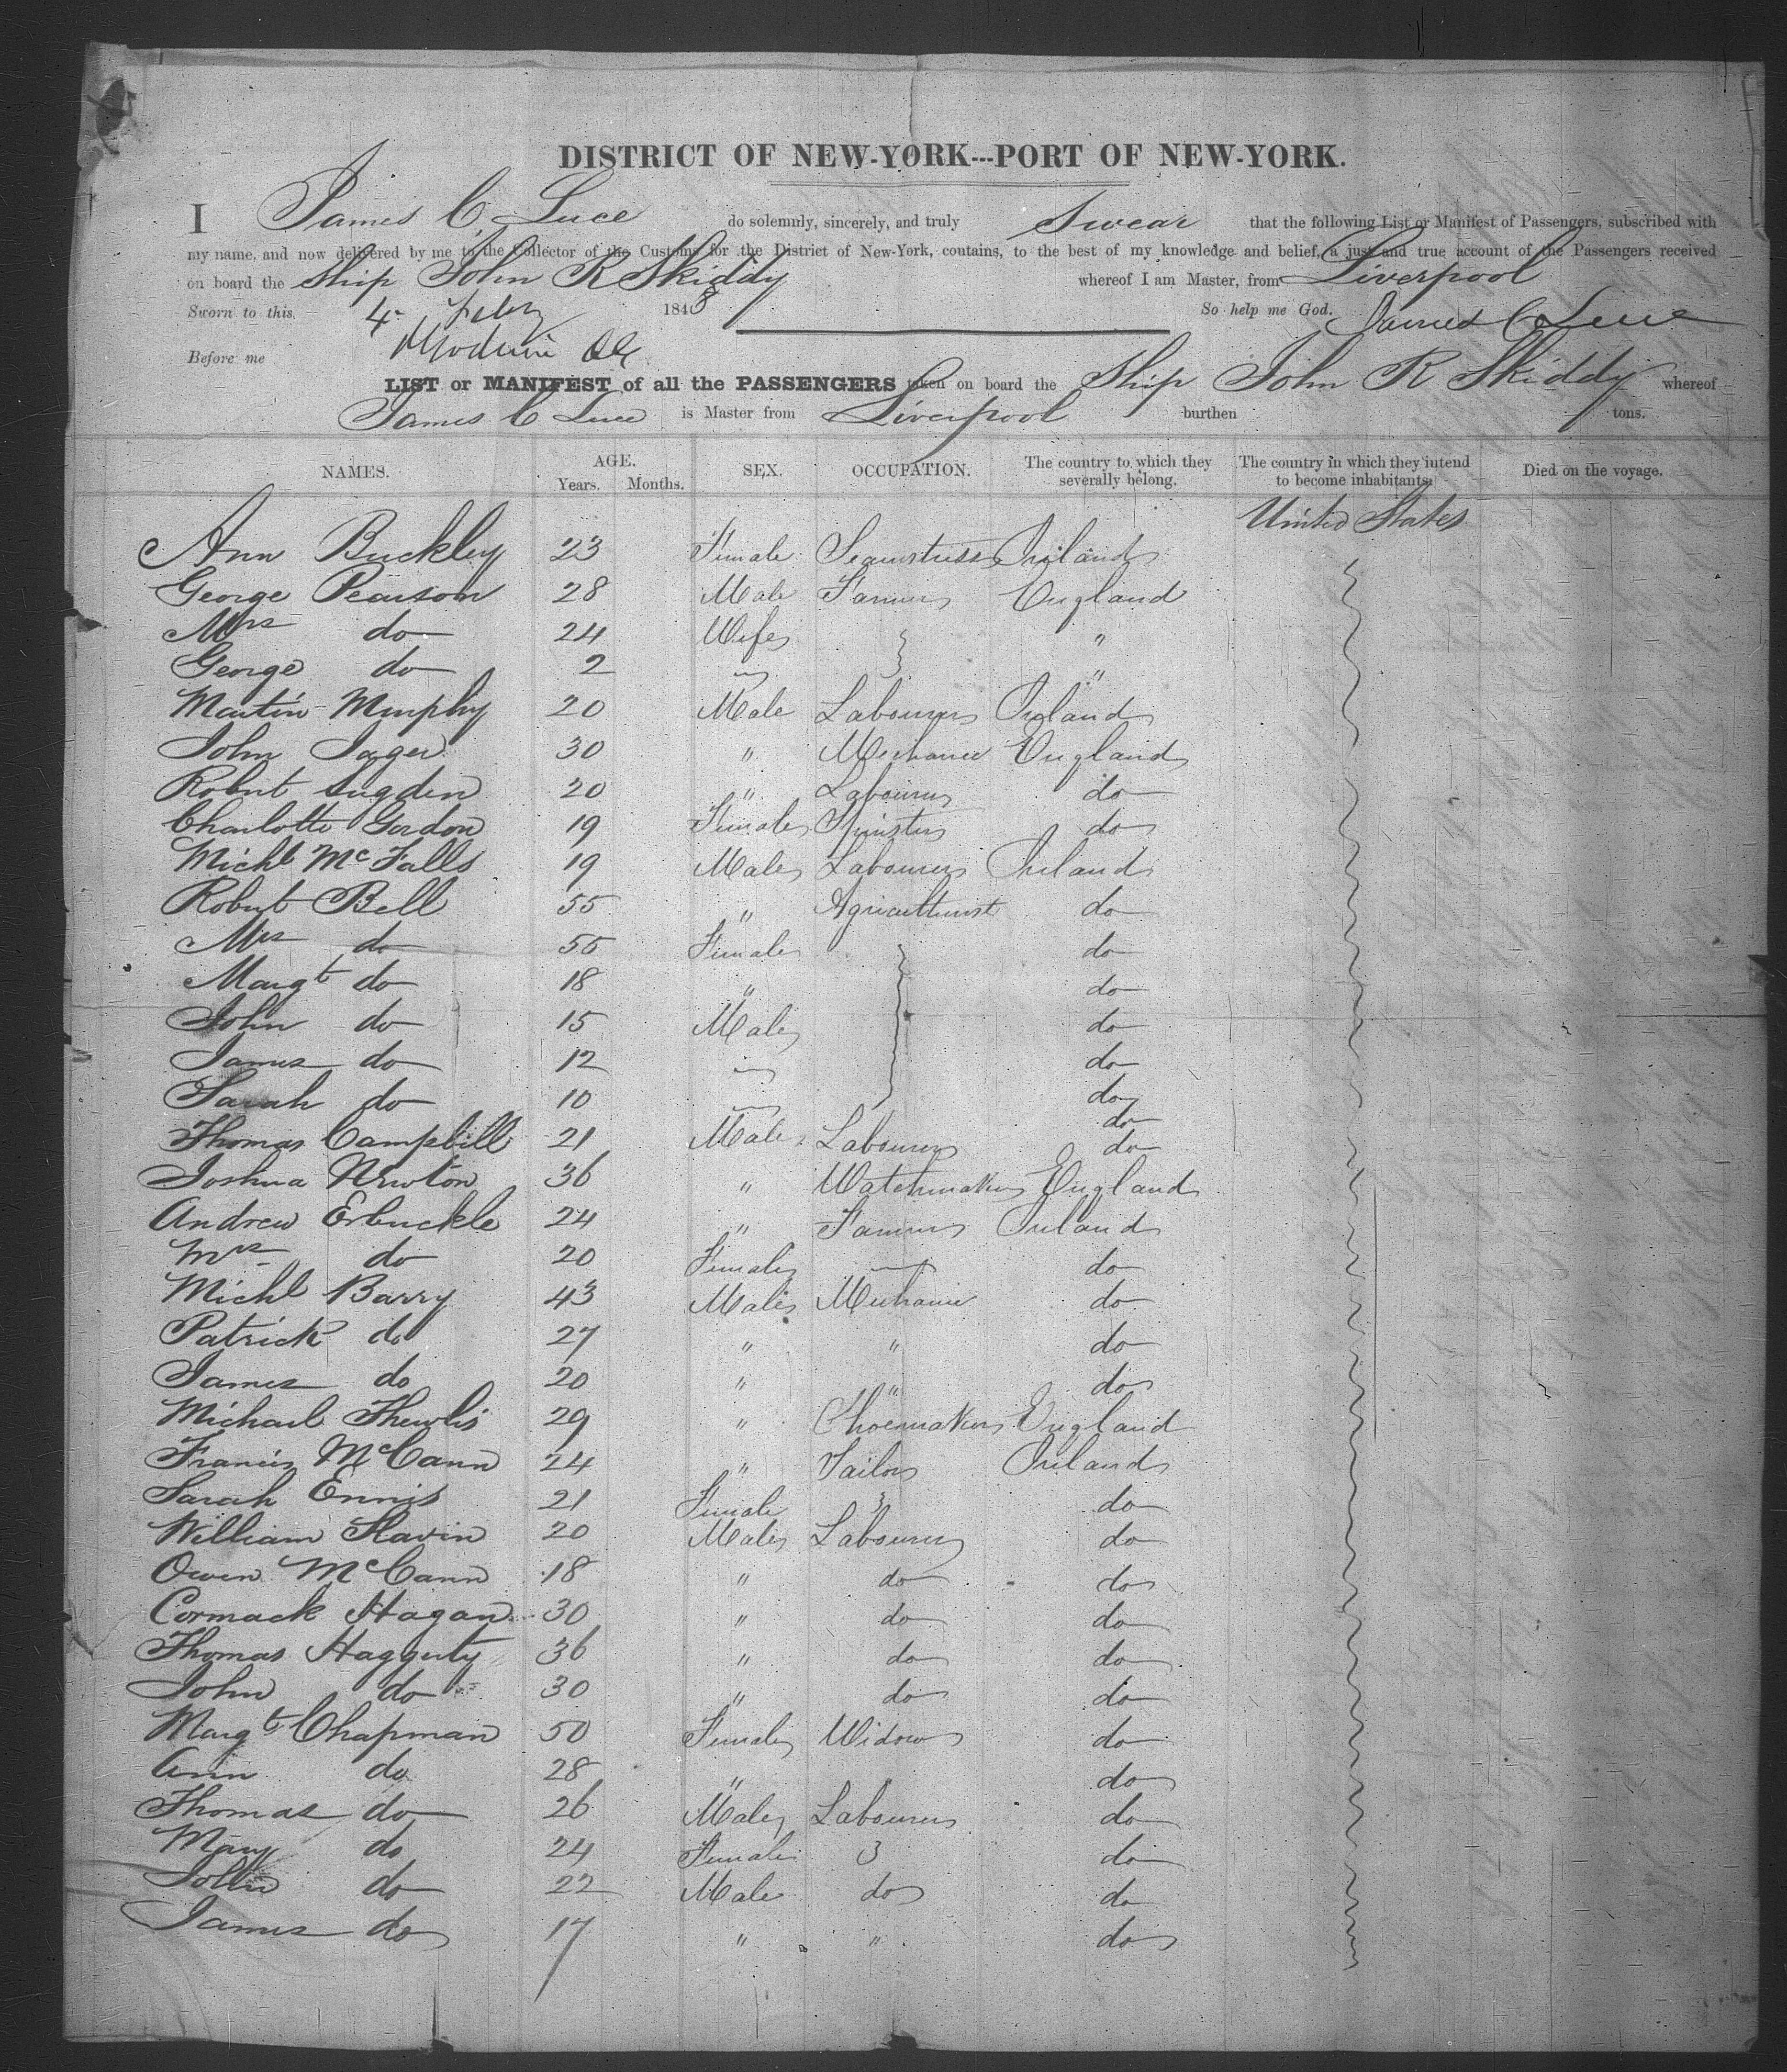 DISTRICT OF NEW-YORK---PORT OF NEW-YORK.
I James C. Luce do solemnly, sincerely, and truly Swear that the following List or Manifest of Passengers, subscribed with
my name, and now delivered by me to the Collector of the Customs for the District of New-York, contains, to the best of my knowledge and belief, a just and true account of the Passengers received
on board the Ship John R Skiddy whereof I am Master, from Liverpool
Sworn to this, 4 Feby 1848 So help me God. James C Luce
Before me
LIST or MANIFEST of all the PASSENGERS taken on board the Ship John R Skiddy whereof
James C Luce is Master from Liverpool burthen tons.
NAMES. AGE. Years. Months. SEX. OCCUPATION. The country to which they severally belong. The country in which they intend to become inhabitants. Died on the voyage.
United States
Ann Buckley 23 Female Seamstress Ireland
George Pearson 28 Male Farmer England
Mrs do 24 Wife "
George do 2 "
Martin Murphy 20 Male Labourer Ireland
John Jager 30 " Mechanic England
Robert Sugden 20 " Labourer do
Charlotte Gordon 19 Female Spinster do
Michl McFalls 19 Male Labourer Ireland
Robert Bell 55 " Agriculturist do
Mrs do 55 Female do
Margt do 18 " do
John do 15 Male do
James do 12 do
Sarah do 10 do
do
Thomas Campbill 21 Male Labourer do
Joshua Newton 36 " Watchmaker England
Andrew Erbuckle 24 " Farmer Ireland
Mrs do 20 Female do
Michl Barry 43 Male Mechanic do
Patrick do 27 " " do
James do 20 " " do
Michael Thewlis 29 " Shoemaker England
Francis McCann 24 " Tailor Ireland
Sarah Ennis 21 Female do
William Slavin 20 Male Labourer do
Owen McCann 18 " do do
Cormack Hagan 30 " do do
Thomas Haggerty 36 " do do
John do 30 " do do
Margt Chapman 50 Female Widow do
Ann do 28 " " do
Thomas do 26 Male Labourer do
Mary do 24 Female do
John do 22 Male do do
James do 17 " " do